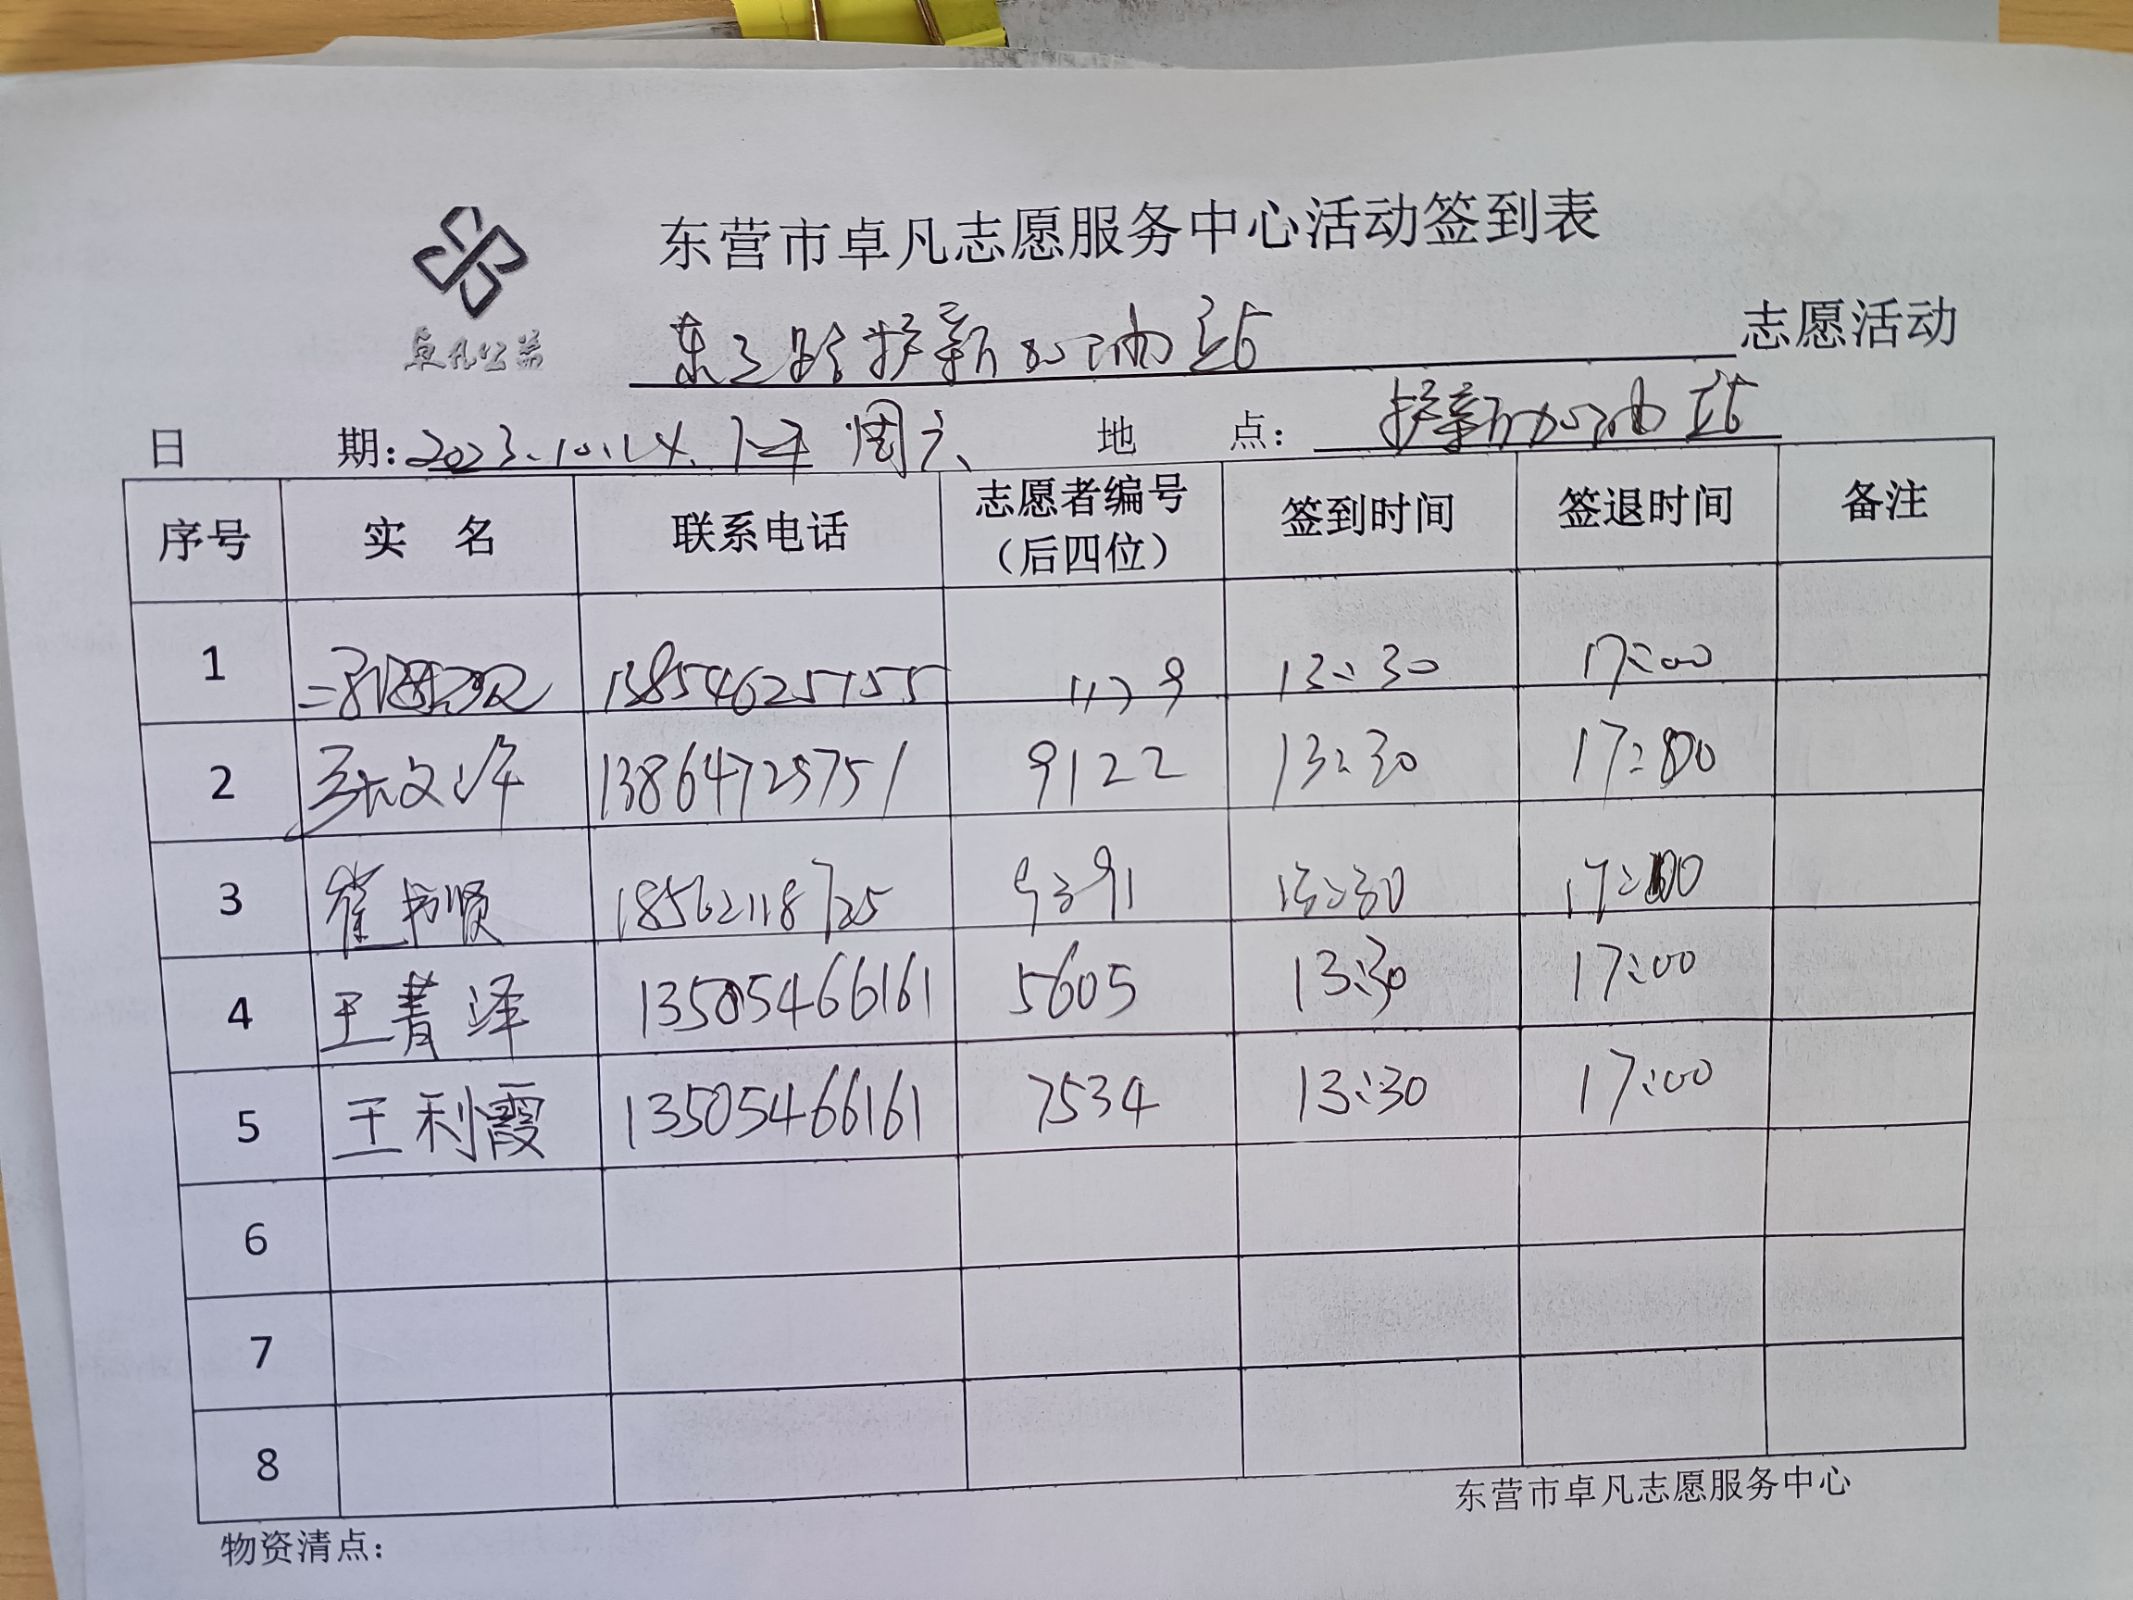 东营市卓凡志愿服务中心活动签到表
卓凡公益
东三路护新加油站 志愿活动
日 期: 2023.10.14.下午 周六 地 点: 护新加油站
序号 实 名 联系电话 志愿者编号（后四位） 签到时间 签退时间 备注
1 13854625155 13:30 17:00
2 13864725751 9122 13:30 17:00
3 崔书贤 18562118725 13:30 17:00
4 王菁泽 13505466161 5605 13:30 17:00
5 王利霞 13505466161 7534 13:30 17:00
6
7
8
东营市卓凡志愿服务中心
物资清点: